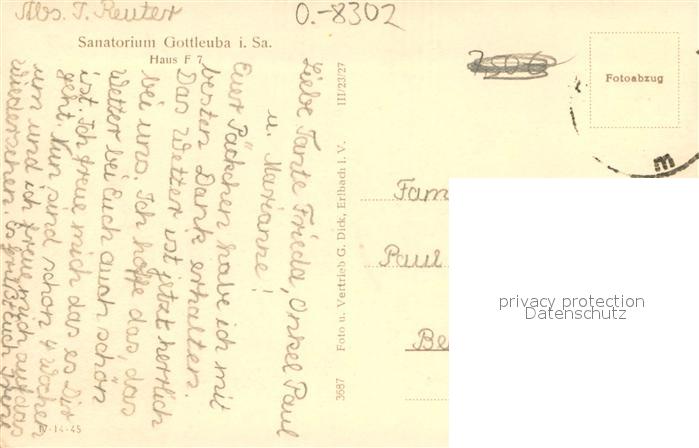 Abs. I. Reuter
0.-8302
Sanatorium Gottleuba i. Sa.
Haus F 7
Liebe Tante Frieda, Onkel Paul
u. Marianne!
Euer Päckchen habe ich mit
besten Dank erhalten.
Das Wetter ist jetzt herrlich
bei uns. Ich hoffe das, das
Wetter bei Euch auch schön
ist. Ich freue mich das es Dir
geht. Nun sind schon 4 Wochen
um und ich freue mich auf das
Wiedersehen. Es grüßt Euch Irene
IV-14-45
3687 Foto u. Vertrieb G. Dick, Erlbach i. V. III/23/27
Fotoabzug
m
Fam
Paul
Be
privacy protection
Datenschutz